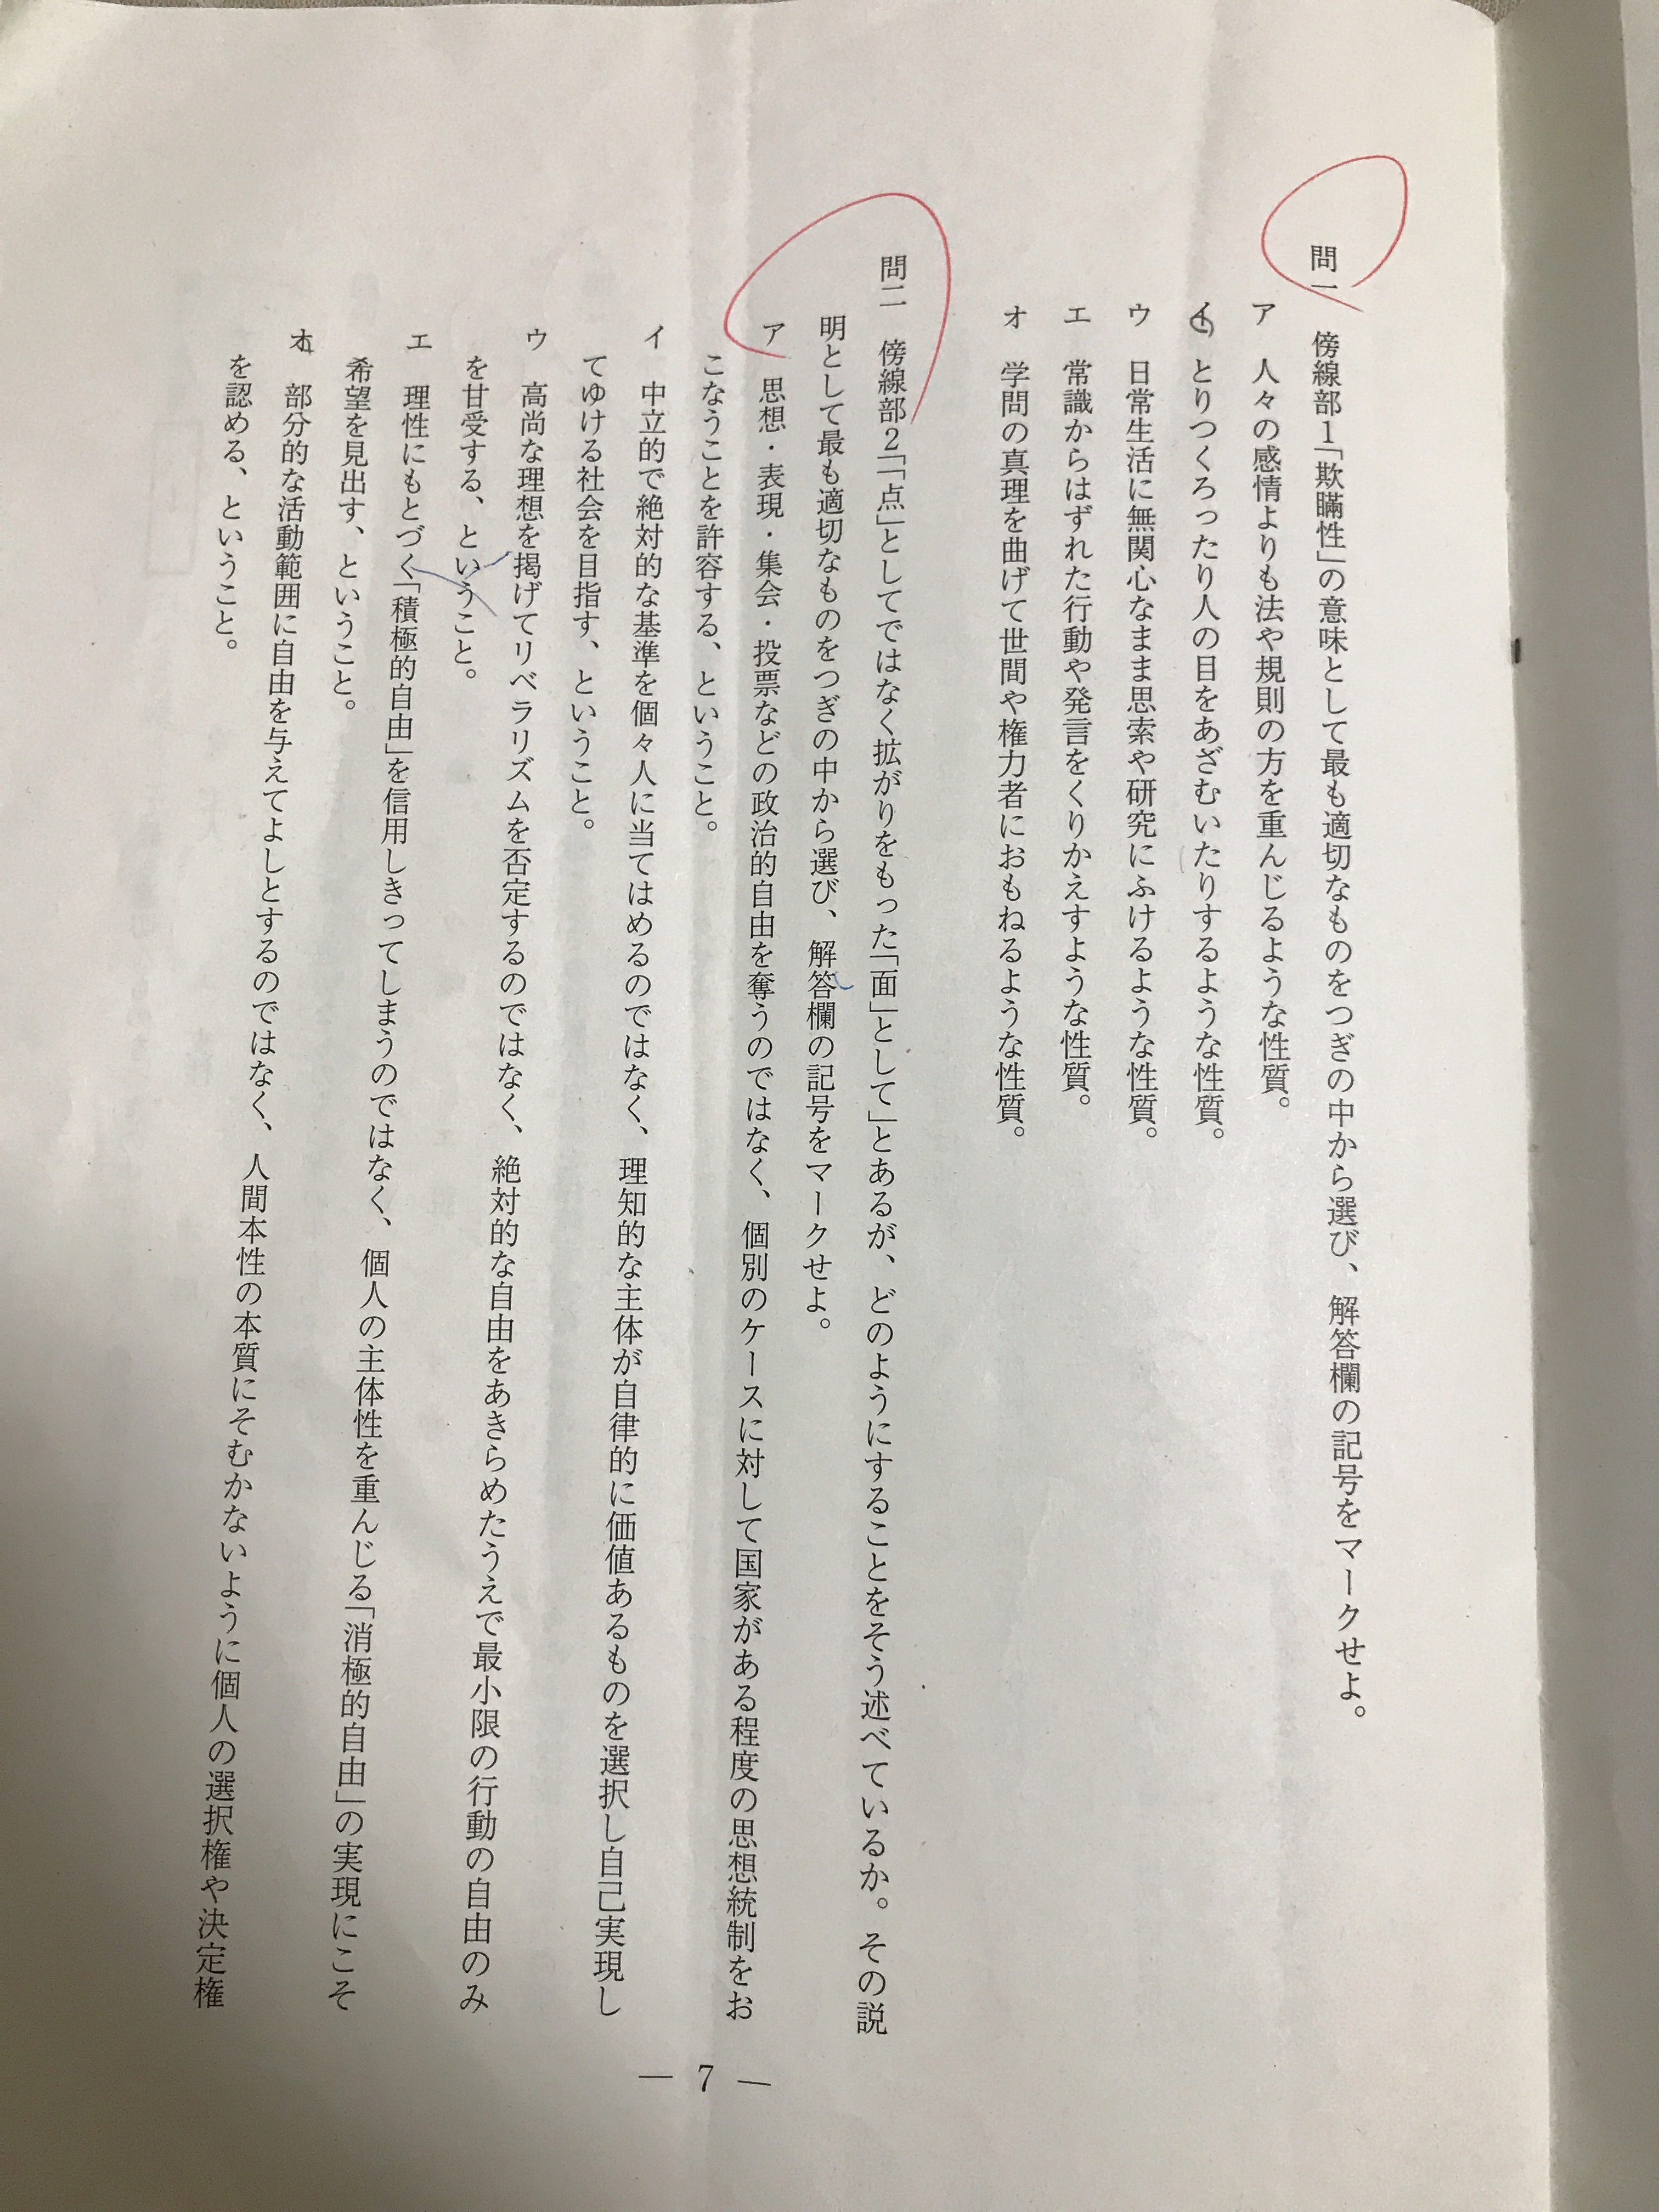 問一　傍線部１「欺瞞性」の意味として最も適切なものをつぎの中から選び、解答欄の記号をマークせよ。
ア　人々の感情よりも法や規則の方を重んじるような性質。
イ　とりつくろったり人の目をあざむいたりするような性質。
ウ　日常生活に無関心なまま思索や研究にふけるような性質。
エ　常識からはずれた行動や発言をくりかえすような性質。
オ　学問の真理を曲げて世間や権力者におもねるような性質。
問二　傍線部２「「点」としてではなく拡がりをもった「面」として」とあるが、どのようにすることをそう述べているか。その説
明として最も適切なものをつぎの中から選び、解答欄の記号をマークせよ。
ア　思想・表現・集会・投票などの政治的自由を奪うのではなく、個別のケースに対して国家がある程度の思想統制をお
こなうことを許容する、ということ。
イ　中立的で絶対的な基準を個々人に当てはめるのではなく、理知的な主体が自律的に価値あるものを選択し自己実現し
てゆける社会を目指す、ということ。
ウ　高尚な理想を掲げてリベラリズムを否定するのではなく、絶対的な自由をあきらめたうえで最小限の行動の自由のみ
を甘受する、ということ。
エ　理性にもとづく「積極的自由」を信用しきってしまうのではなく、個人の主体性を重んじる「消極的自由」の実現にこそ
希望を見出す、ということ。
オ　部分的な活動範囲に自由を与えてよしとするのではなく、人間本性の本質にそむかないように個人の選択権や決定権
を認める、ということ。
— 7 —